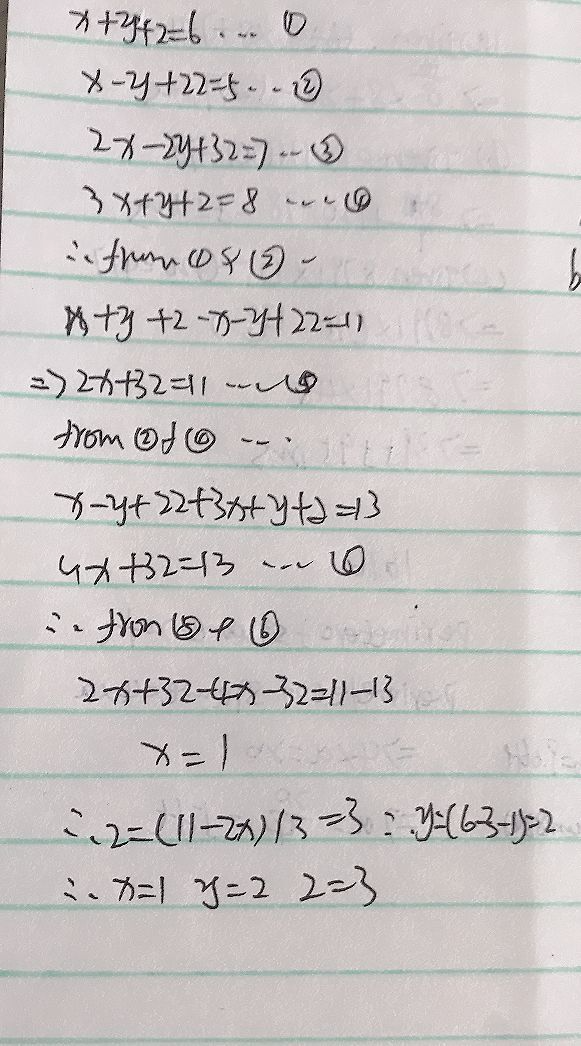 x+y+z=6 .... ①
x-y+2z=5 ... ②
2x-2y+3z=7 ... ③
3x+y+z=8 .... ④
∴ from ① & ② -
x+y+z-x-y+2z=11
=> 2x+3z=11 .... ⑤
from ② & ④ ---.
x-y+2z+3x+y+z=13
4x+3z=13 .... ⑥
∴ from ⑤ & ⑥
2x+3z-4x-3z=11-13
x=1
∴ z=(11-2x)/3=3 ∴ y=(6-3-1)=2
∴ x=1 y=2 z=3
b